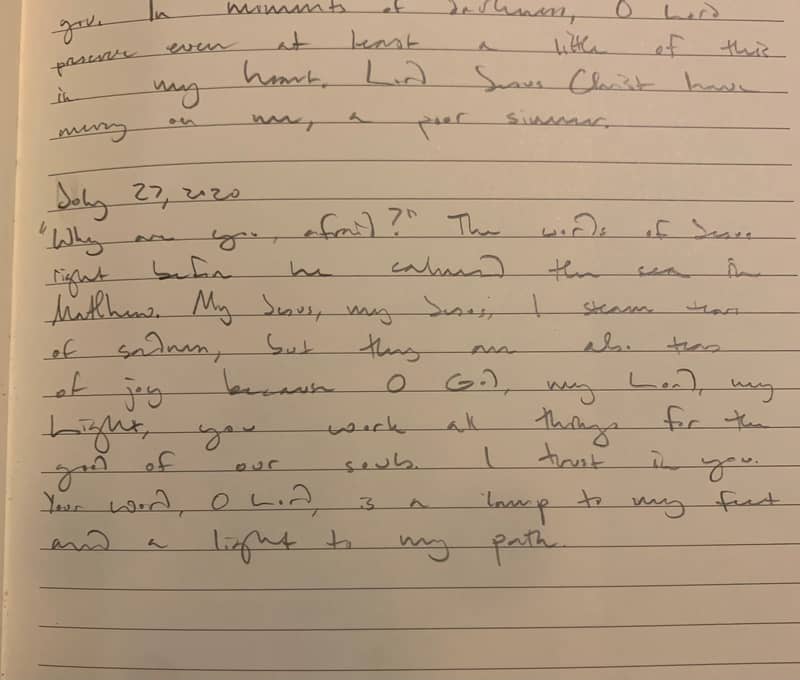 give. In moments of darkness, O Lord
preserve even at least a little of this
in my heart. Lord Jesus Christ have
mercy on me, a poor sinner.
July 27, 2020
"Why are you, afraid?" The words of Jesus
right before he calmed the sea in
Matthew. My Jesus, my Jesus, I stream tears
of sadness, but they are also tears
of joy because O God, my Lord, my
Light, you work all things for the
good of our souls. I trust in you.
Your word, O Lord, is a lamp to my feet
and a light to my path.